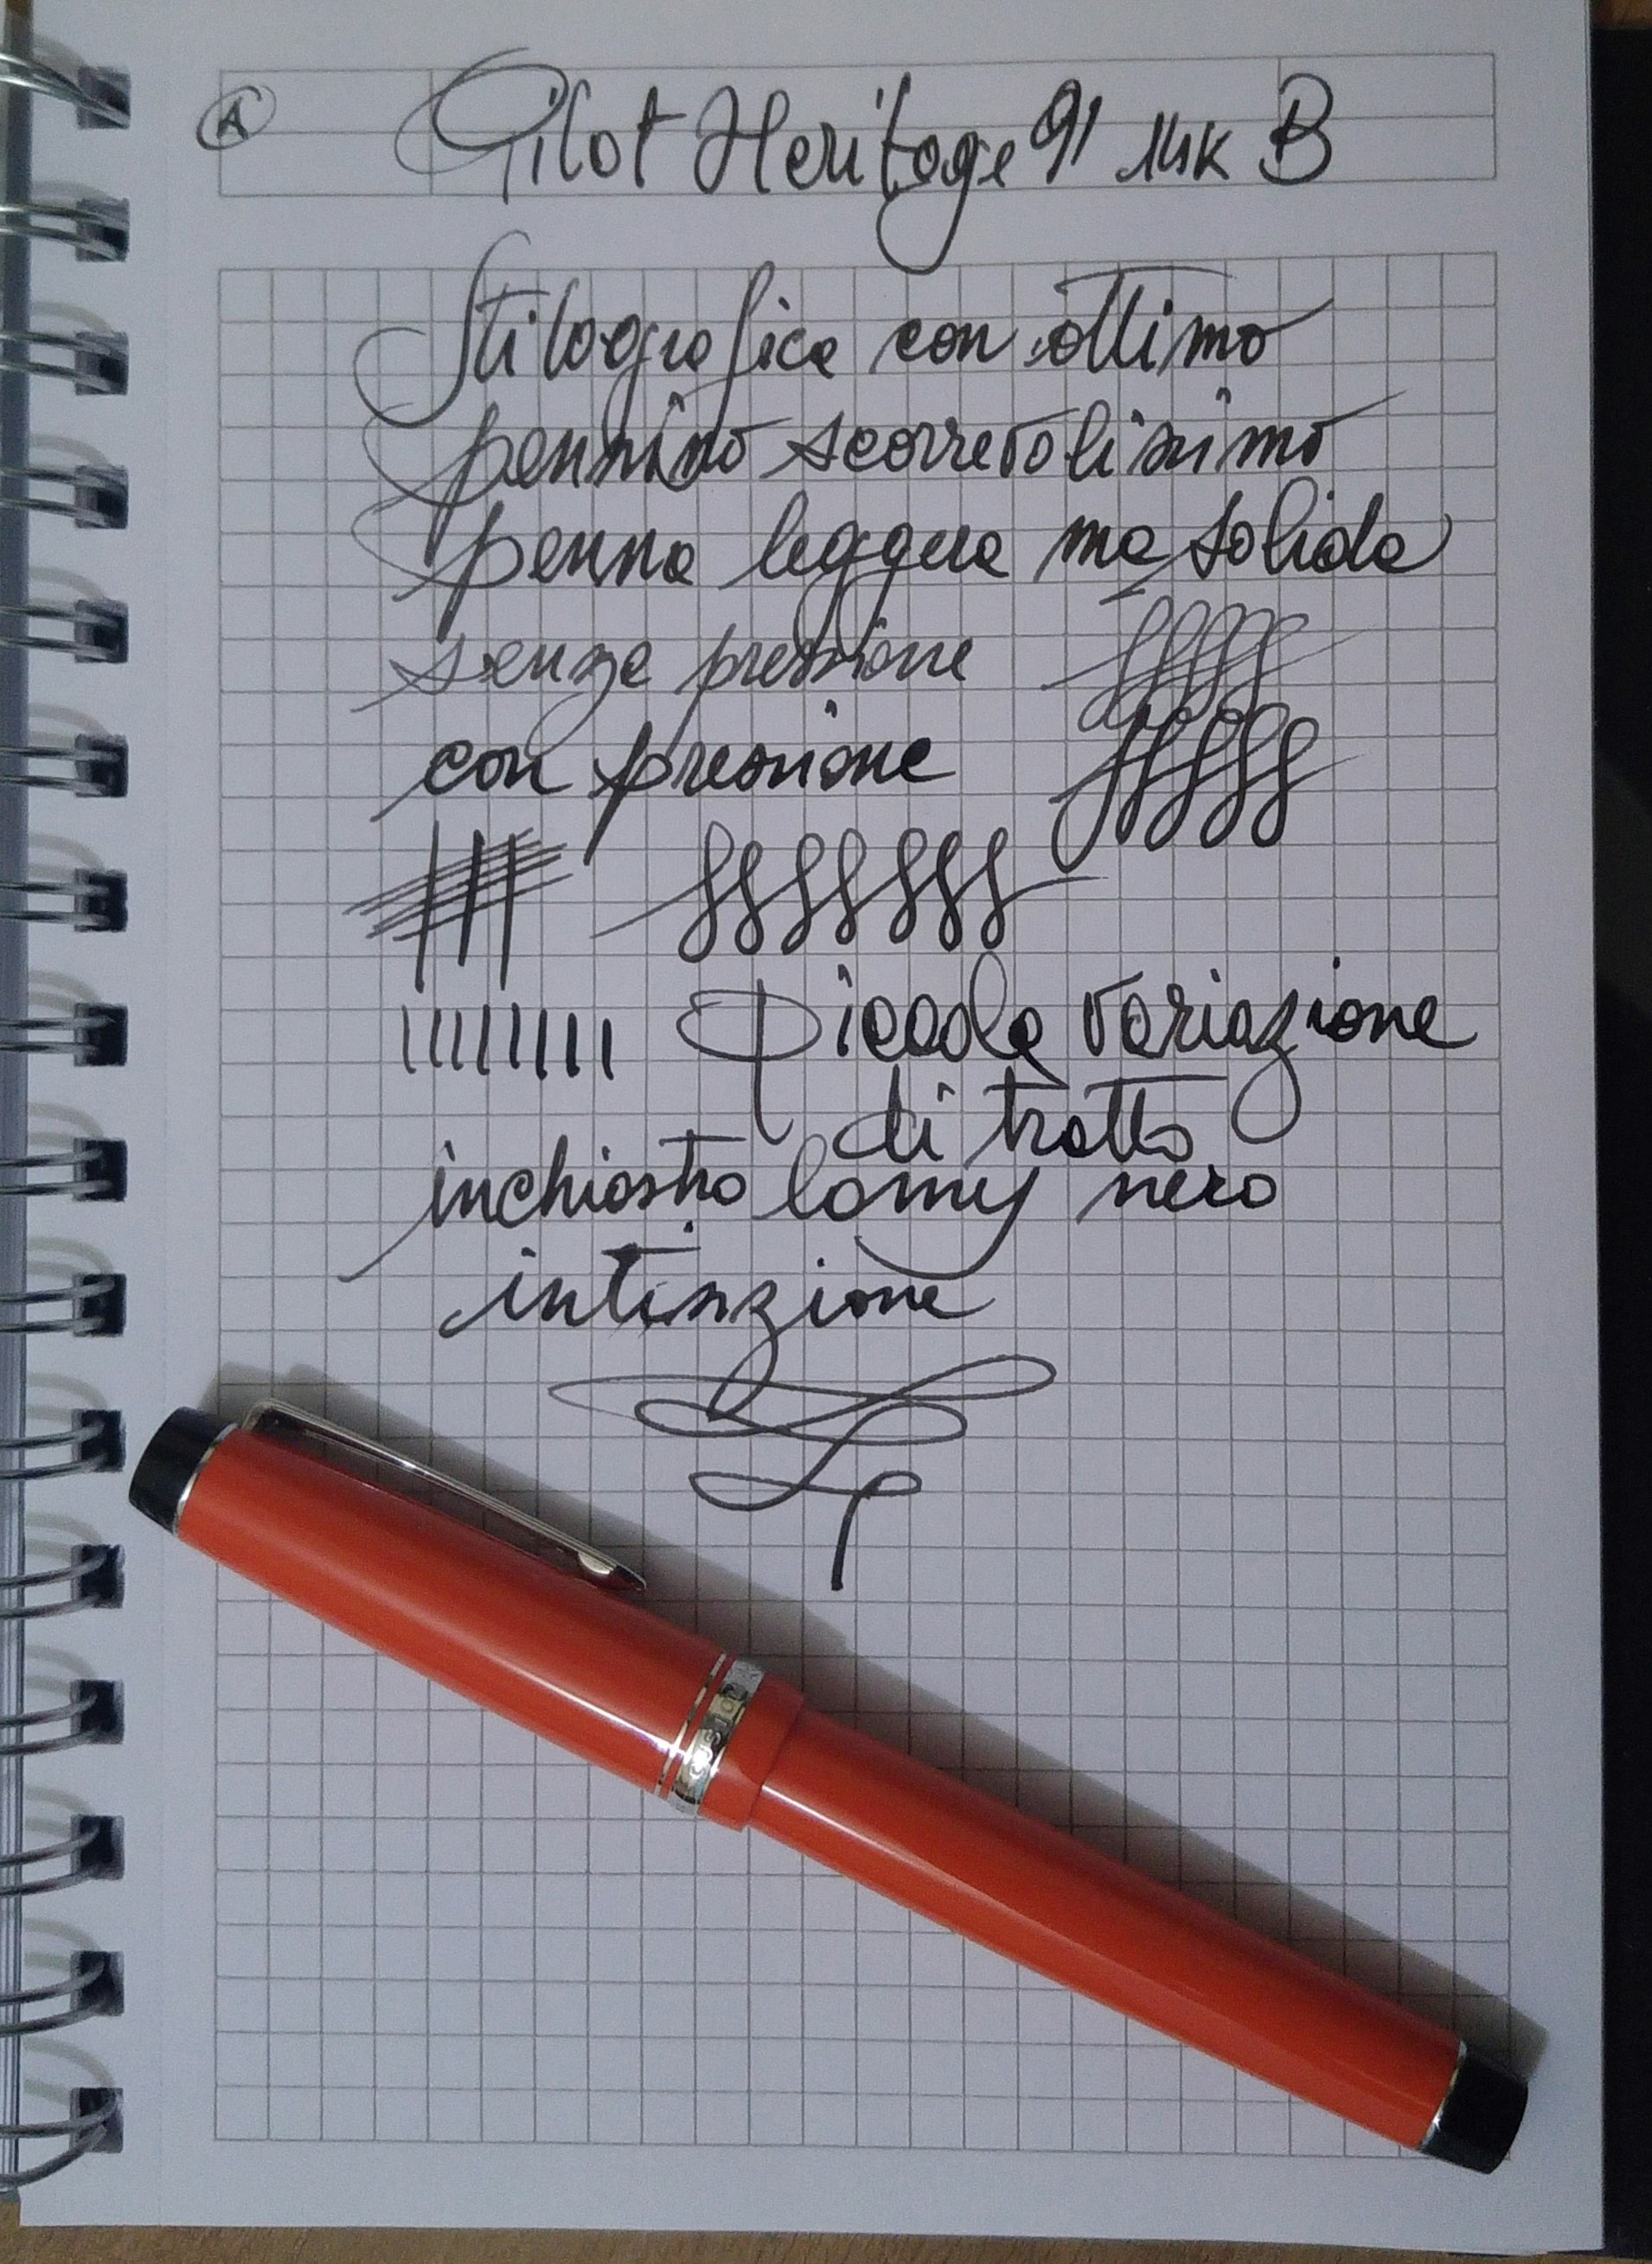 A Pilot Heritage 91 14K B
Stilografica con ottimo
pennino scorrevolissimo
penna leggera ma solida
senza pressione
con pressione
Piccola variazione
di tratto
inchiostro lamy nero
CUSTOM